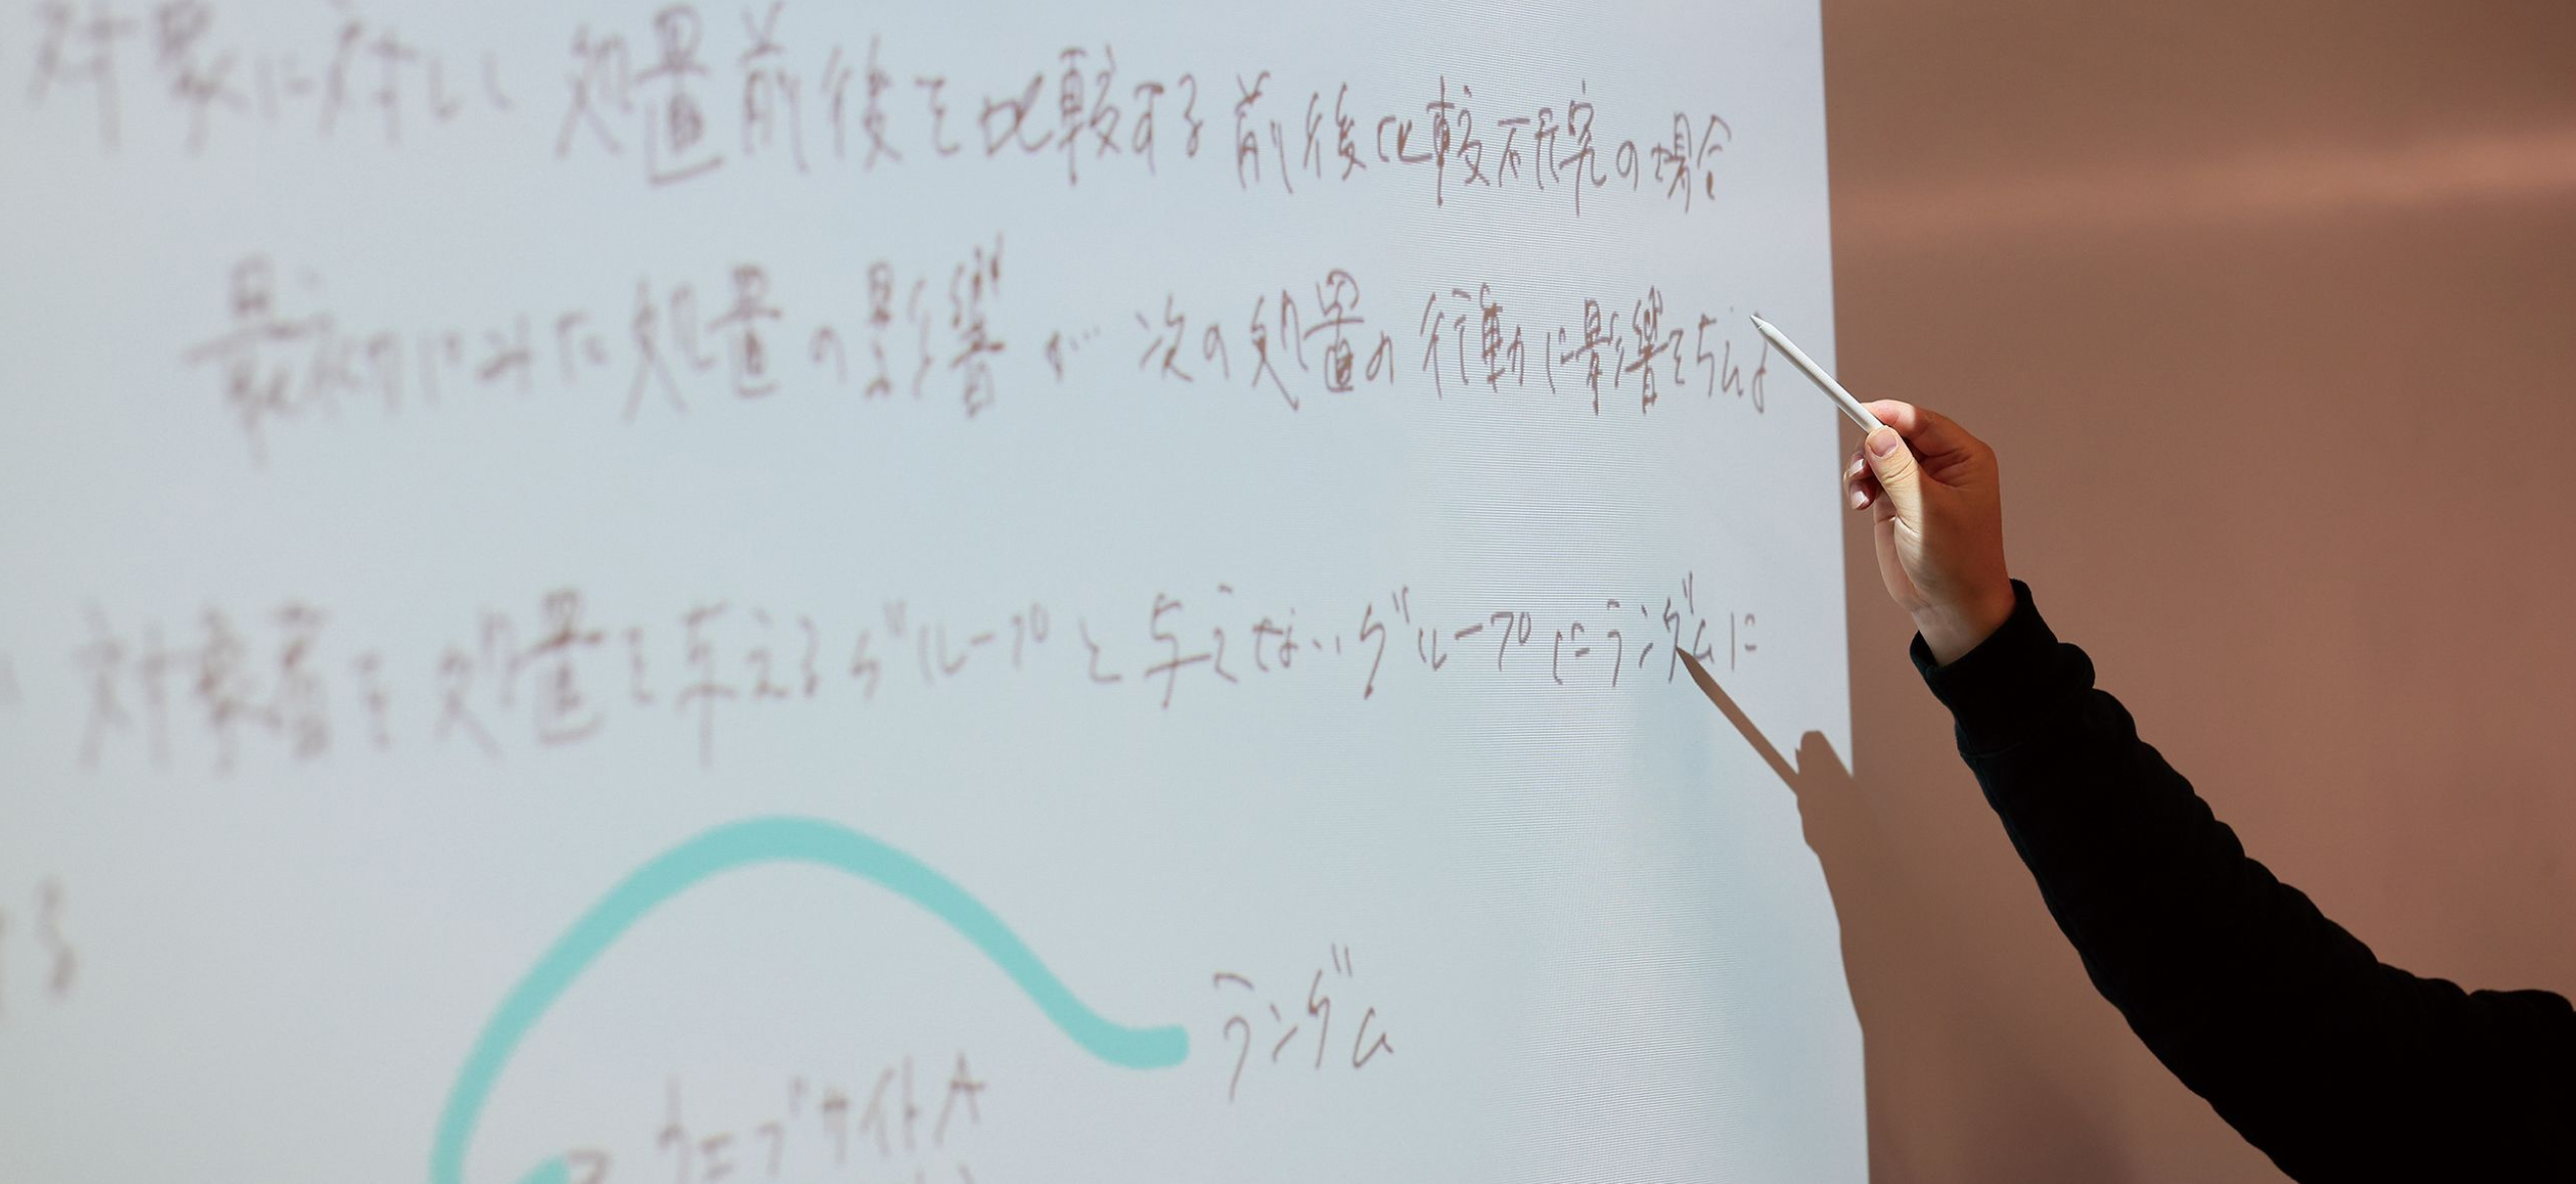 対象に対し 処置前後を比較する前後比較研究の場合
最初にみた処置の影響が 次の処置の行動に影響を与える
対象者を処置を与えるグループと与えないグループにランダムに
する
ランダム
ウェブサイトA